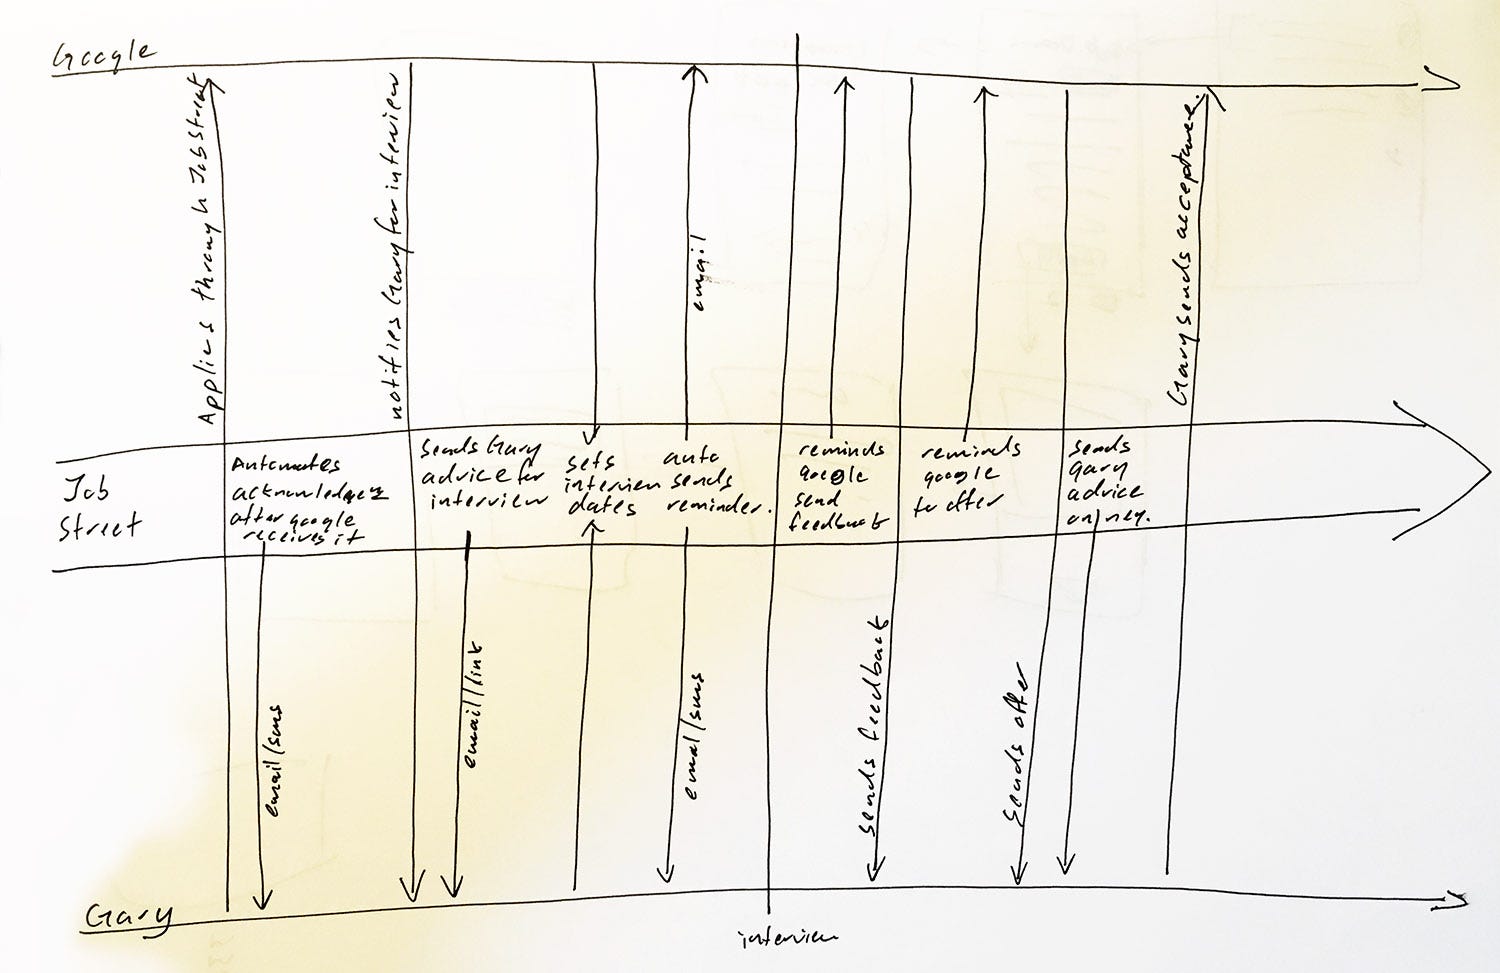 Google
Applies through JobStreet
notifies Gary for interview
email
Gary sends acceptance.
Job
Street
Automates
after google
receives it
Sends Gary
advice for
interview
sets
interview
dates
auto
sends
reminder.
reminds
google
send
feedback
reminds
google
to offer
sends
gary
advice
email/sms
email/link
email/sms
sends feedback
sends offer
Gary
interview